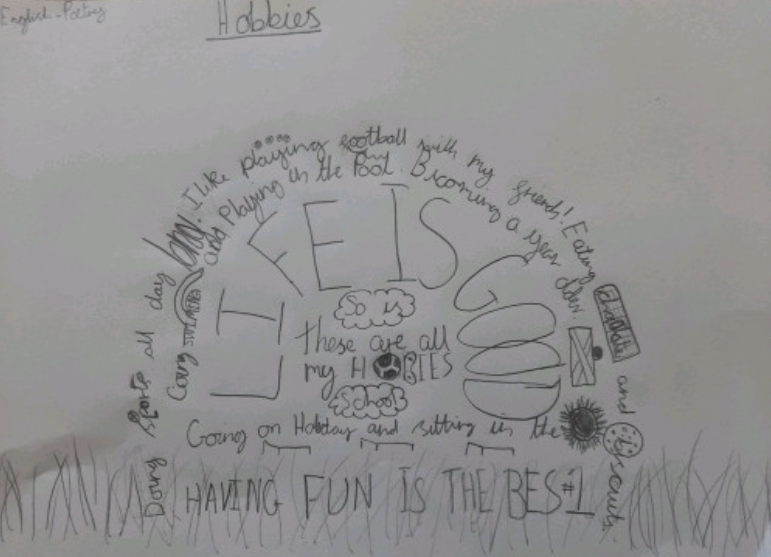 English - Poetry
Hobbies
Doing Sports all day long. I like playing football with my friends! Eating chocolate and biscuits
Going swimming and Playing in the Pool. Becoming a year older.
LIFE IS GOOD
So is
these are all
my HOBBIES
School
Going on Holiday and sitting in the
HAVING FUN IS THE BES#1